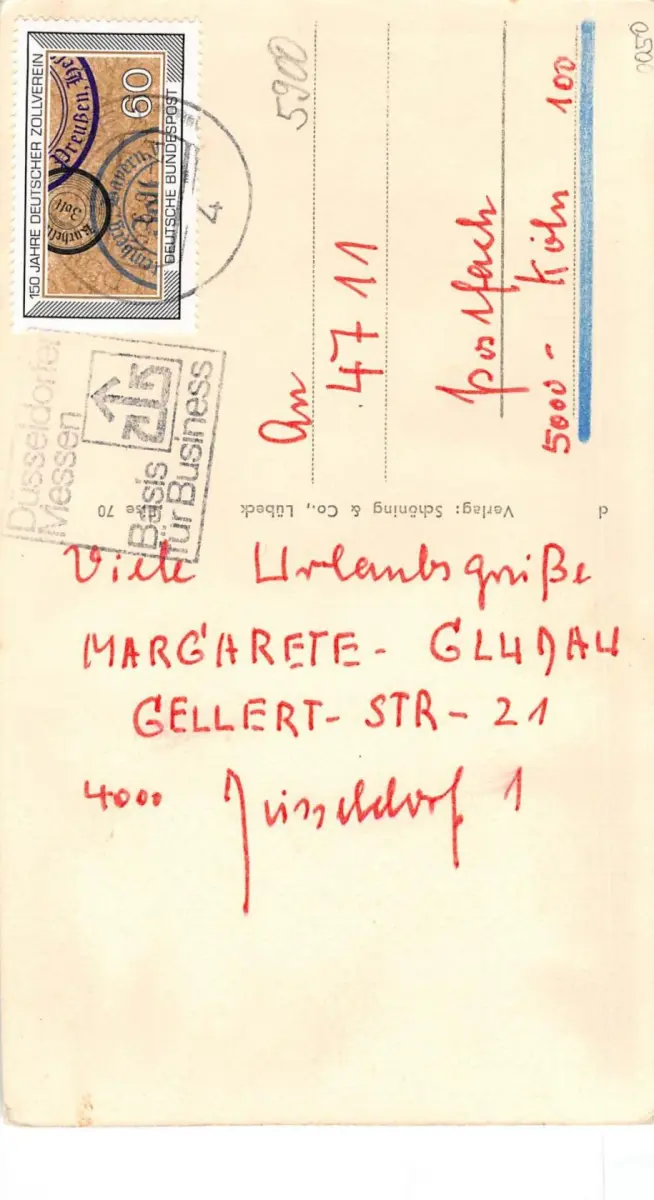 150 JAHRE DEUTSCHER ZOLLVEREIN
Preußen,
60
DEUTSCHE BUNDESPOST
4
Düsseldorfer
Messen
Basis
für Business
5900
0250
An
4711
Postfach
5000 - Köln 100
Verlag: Schöning & Co., Lübeck
70
d
Viele Urlaubsgrüße
MARGARETE - GLUDAU
GELLERT - STR - 21
4000 Düsseldorf 1